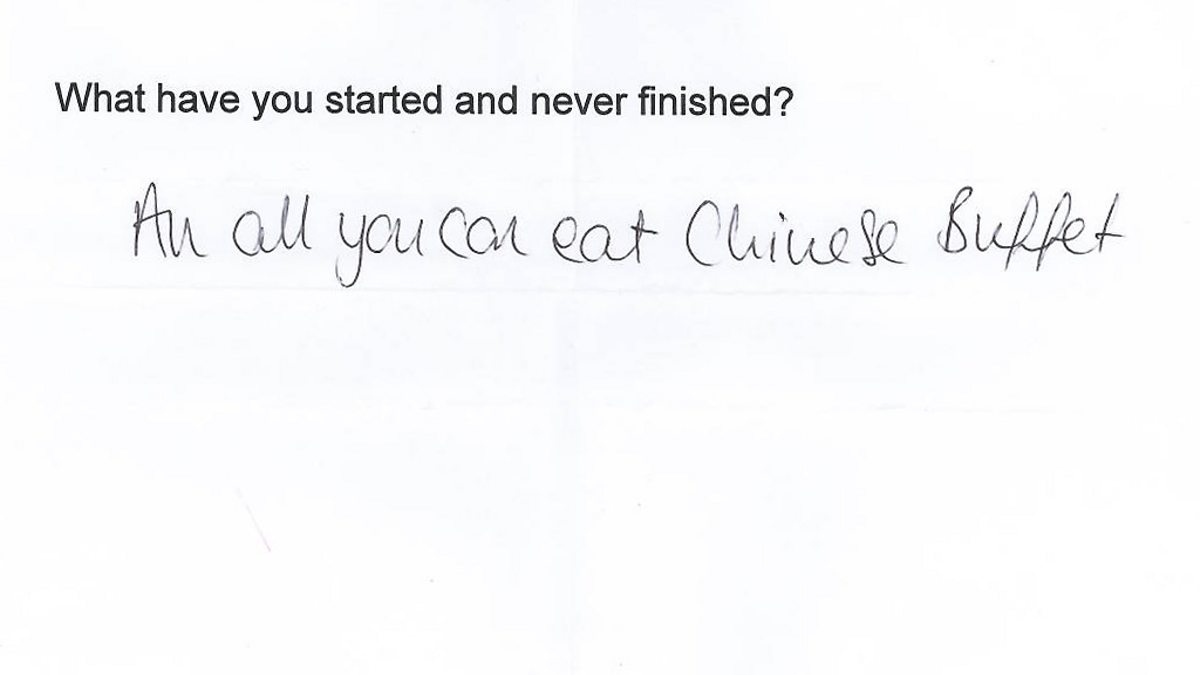 What have you started and never finished?
An all you can eat Chinese Buffet